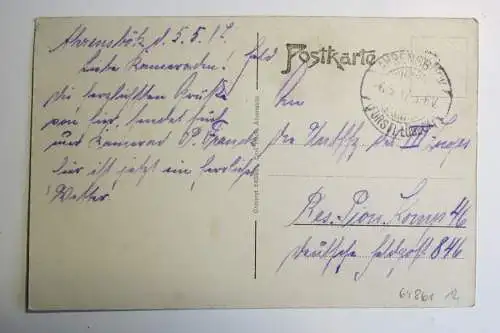 Ahrensbök, d. 5.5.17.
Liebe Kameraden!
Die herzlichsten Grüße
von hier, sendet Euch
und Kamerad P.
hier ist jetzt ein herrliches
Wetter,
Feld
Postkarte
An
die des III Zuges
Res. Pion. Komp 46
Deutsche Feldpost 846
AHRENSBÖK
6.5.17
64861